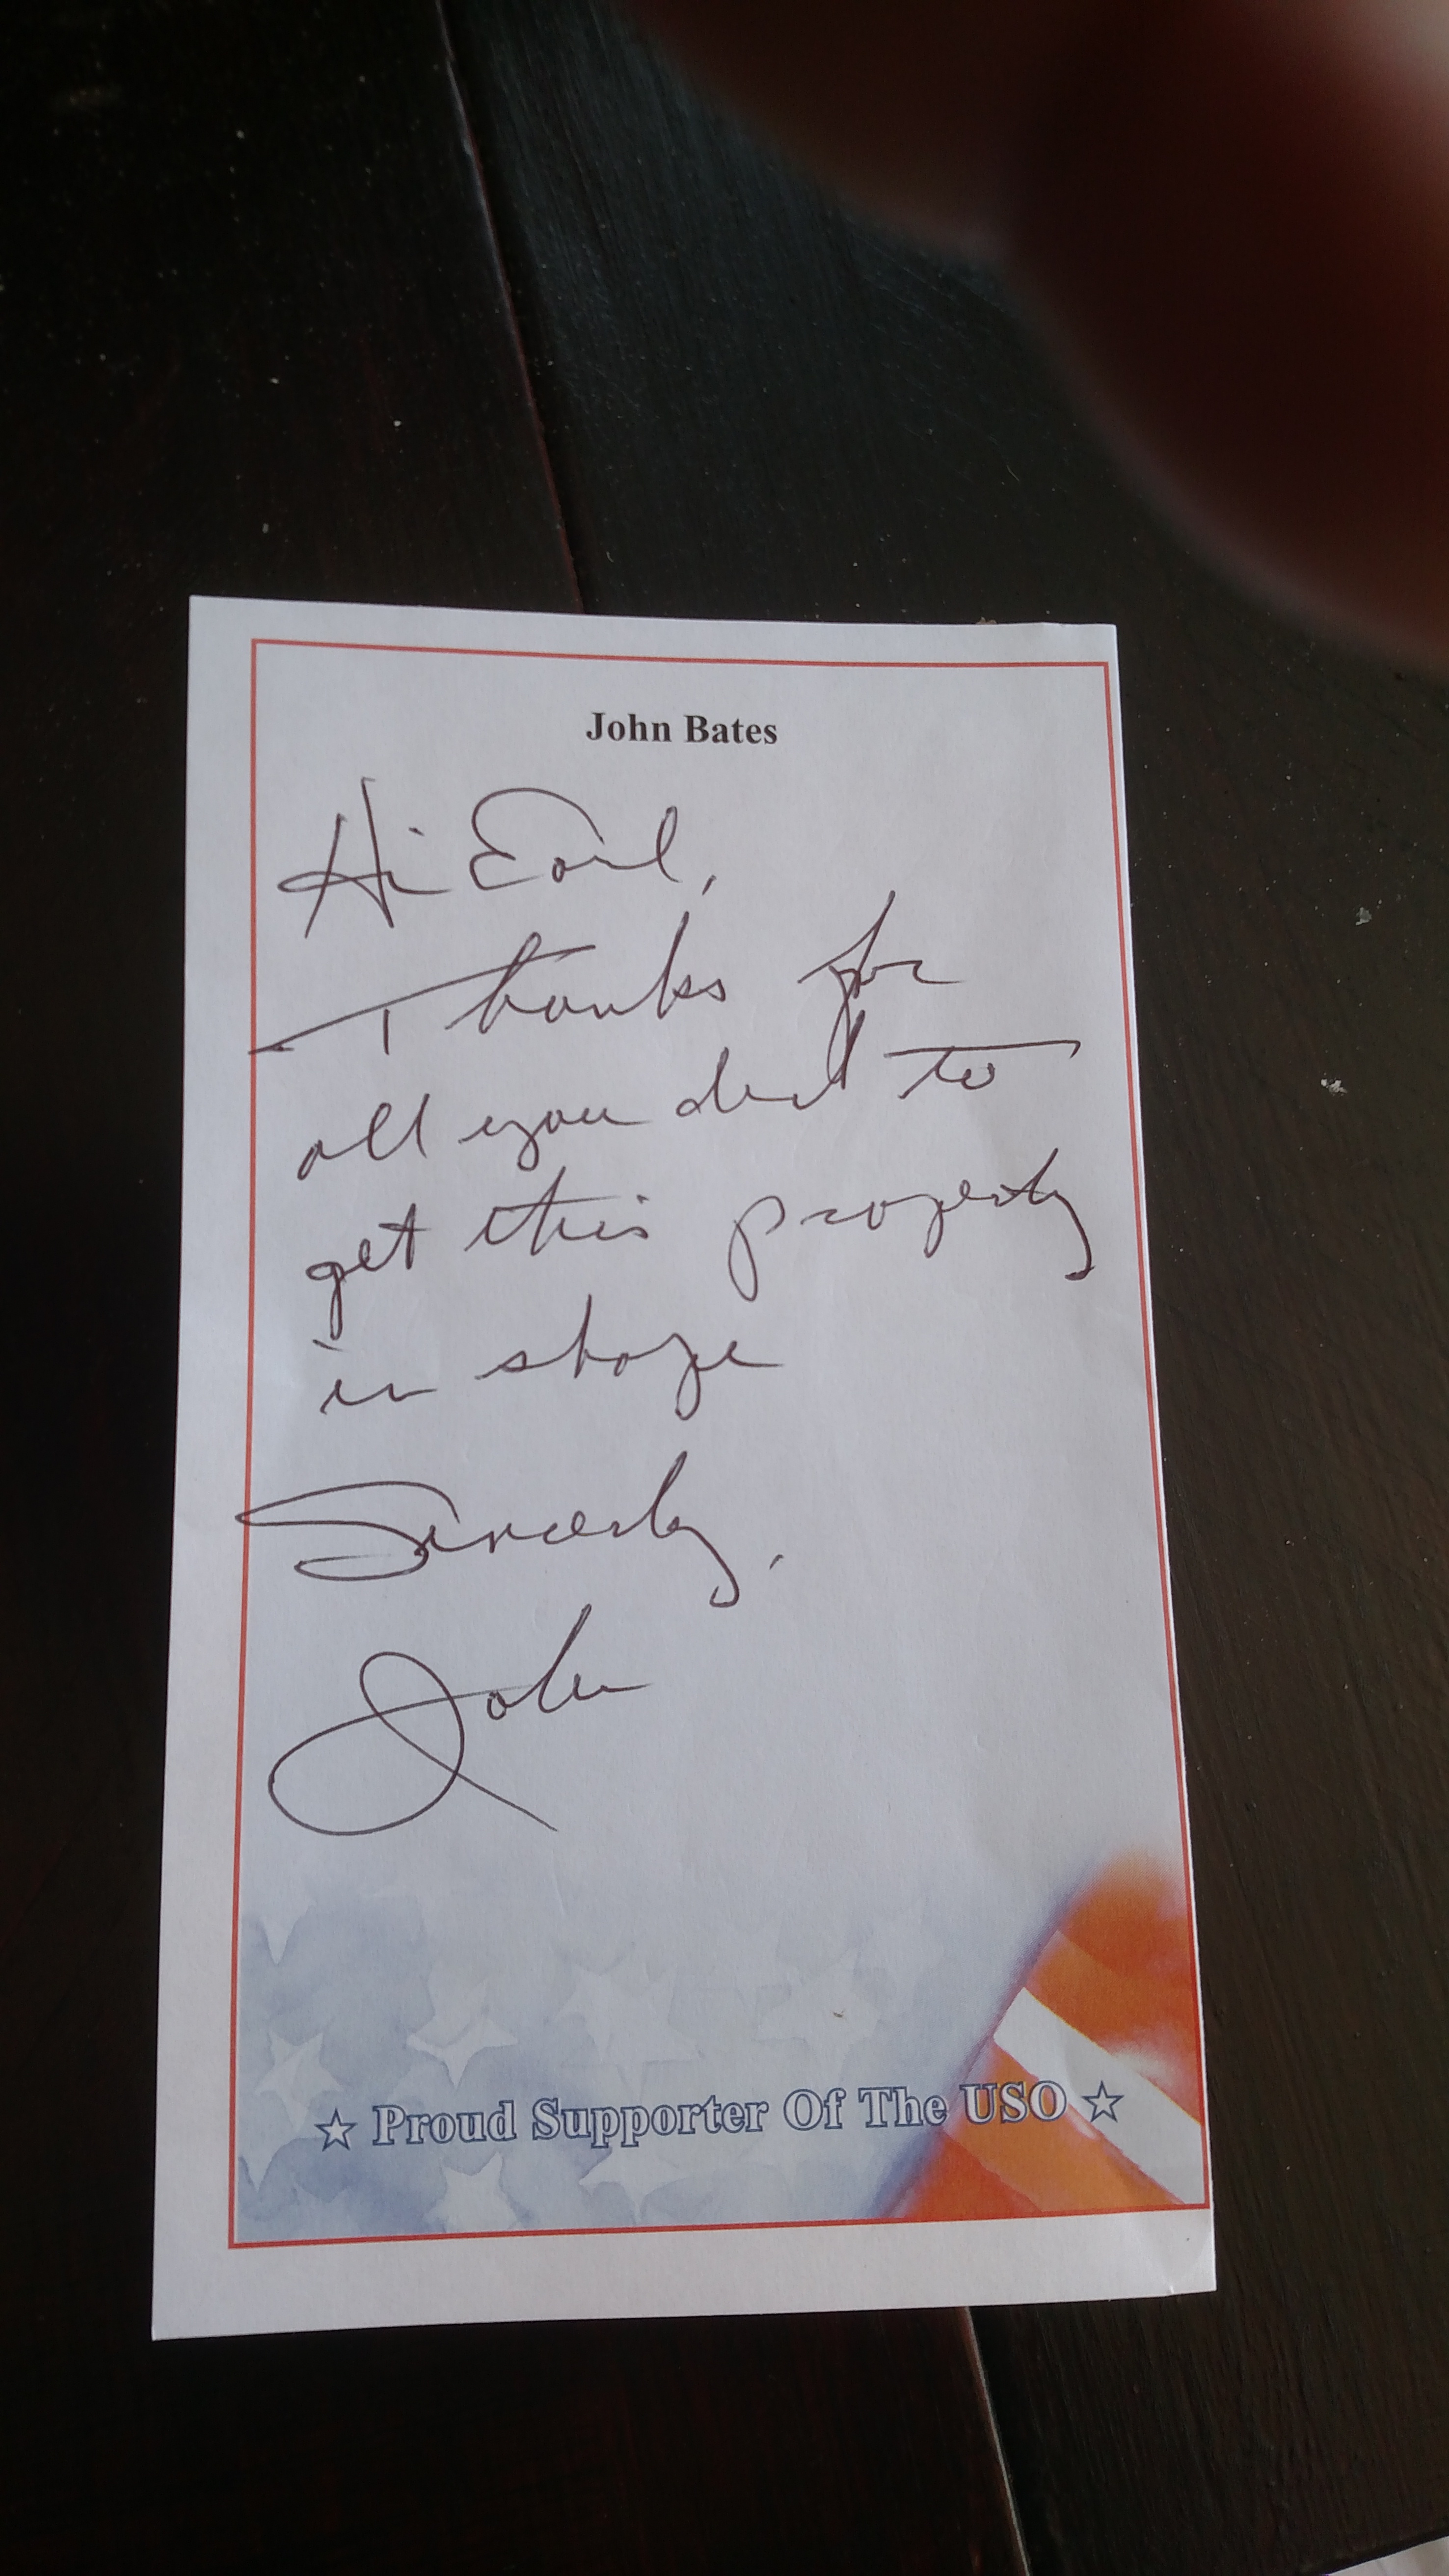 John Bates
Hi Earl,
Thanks for
all you did to
get this property
in shape
Sincerely,
John
☆ Proud Supporter Of The USO ☆